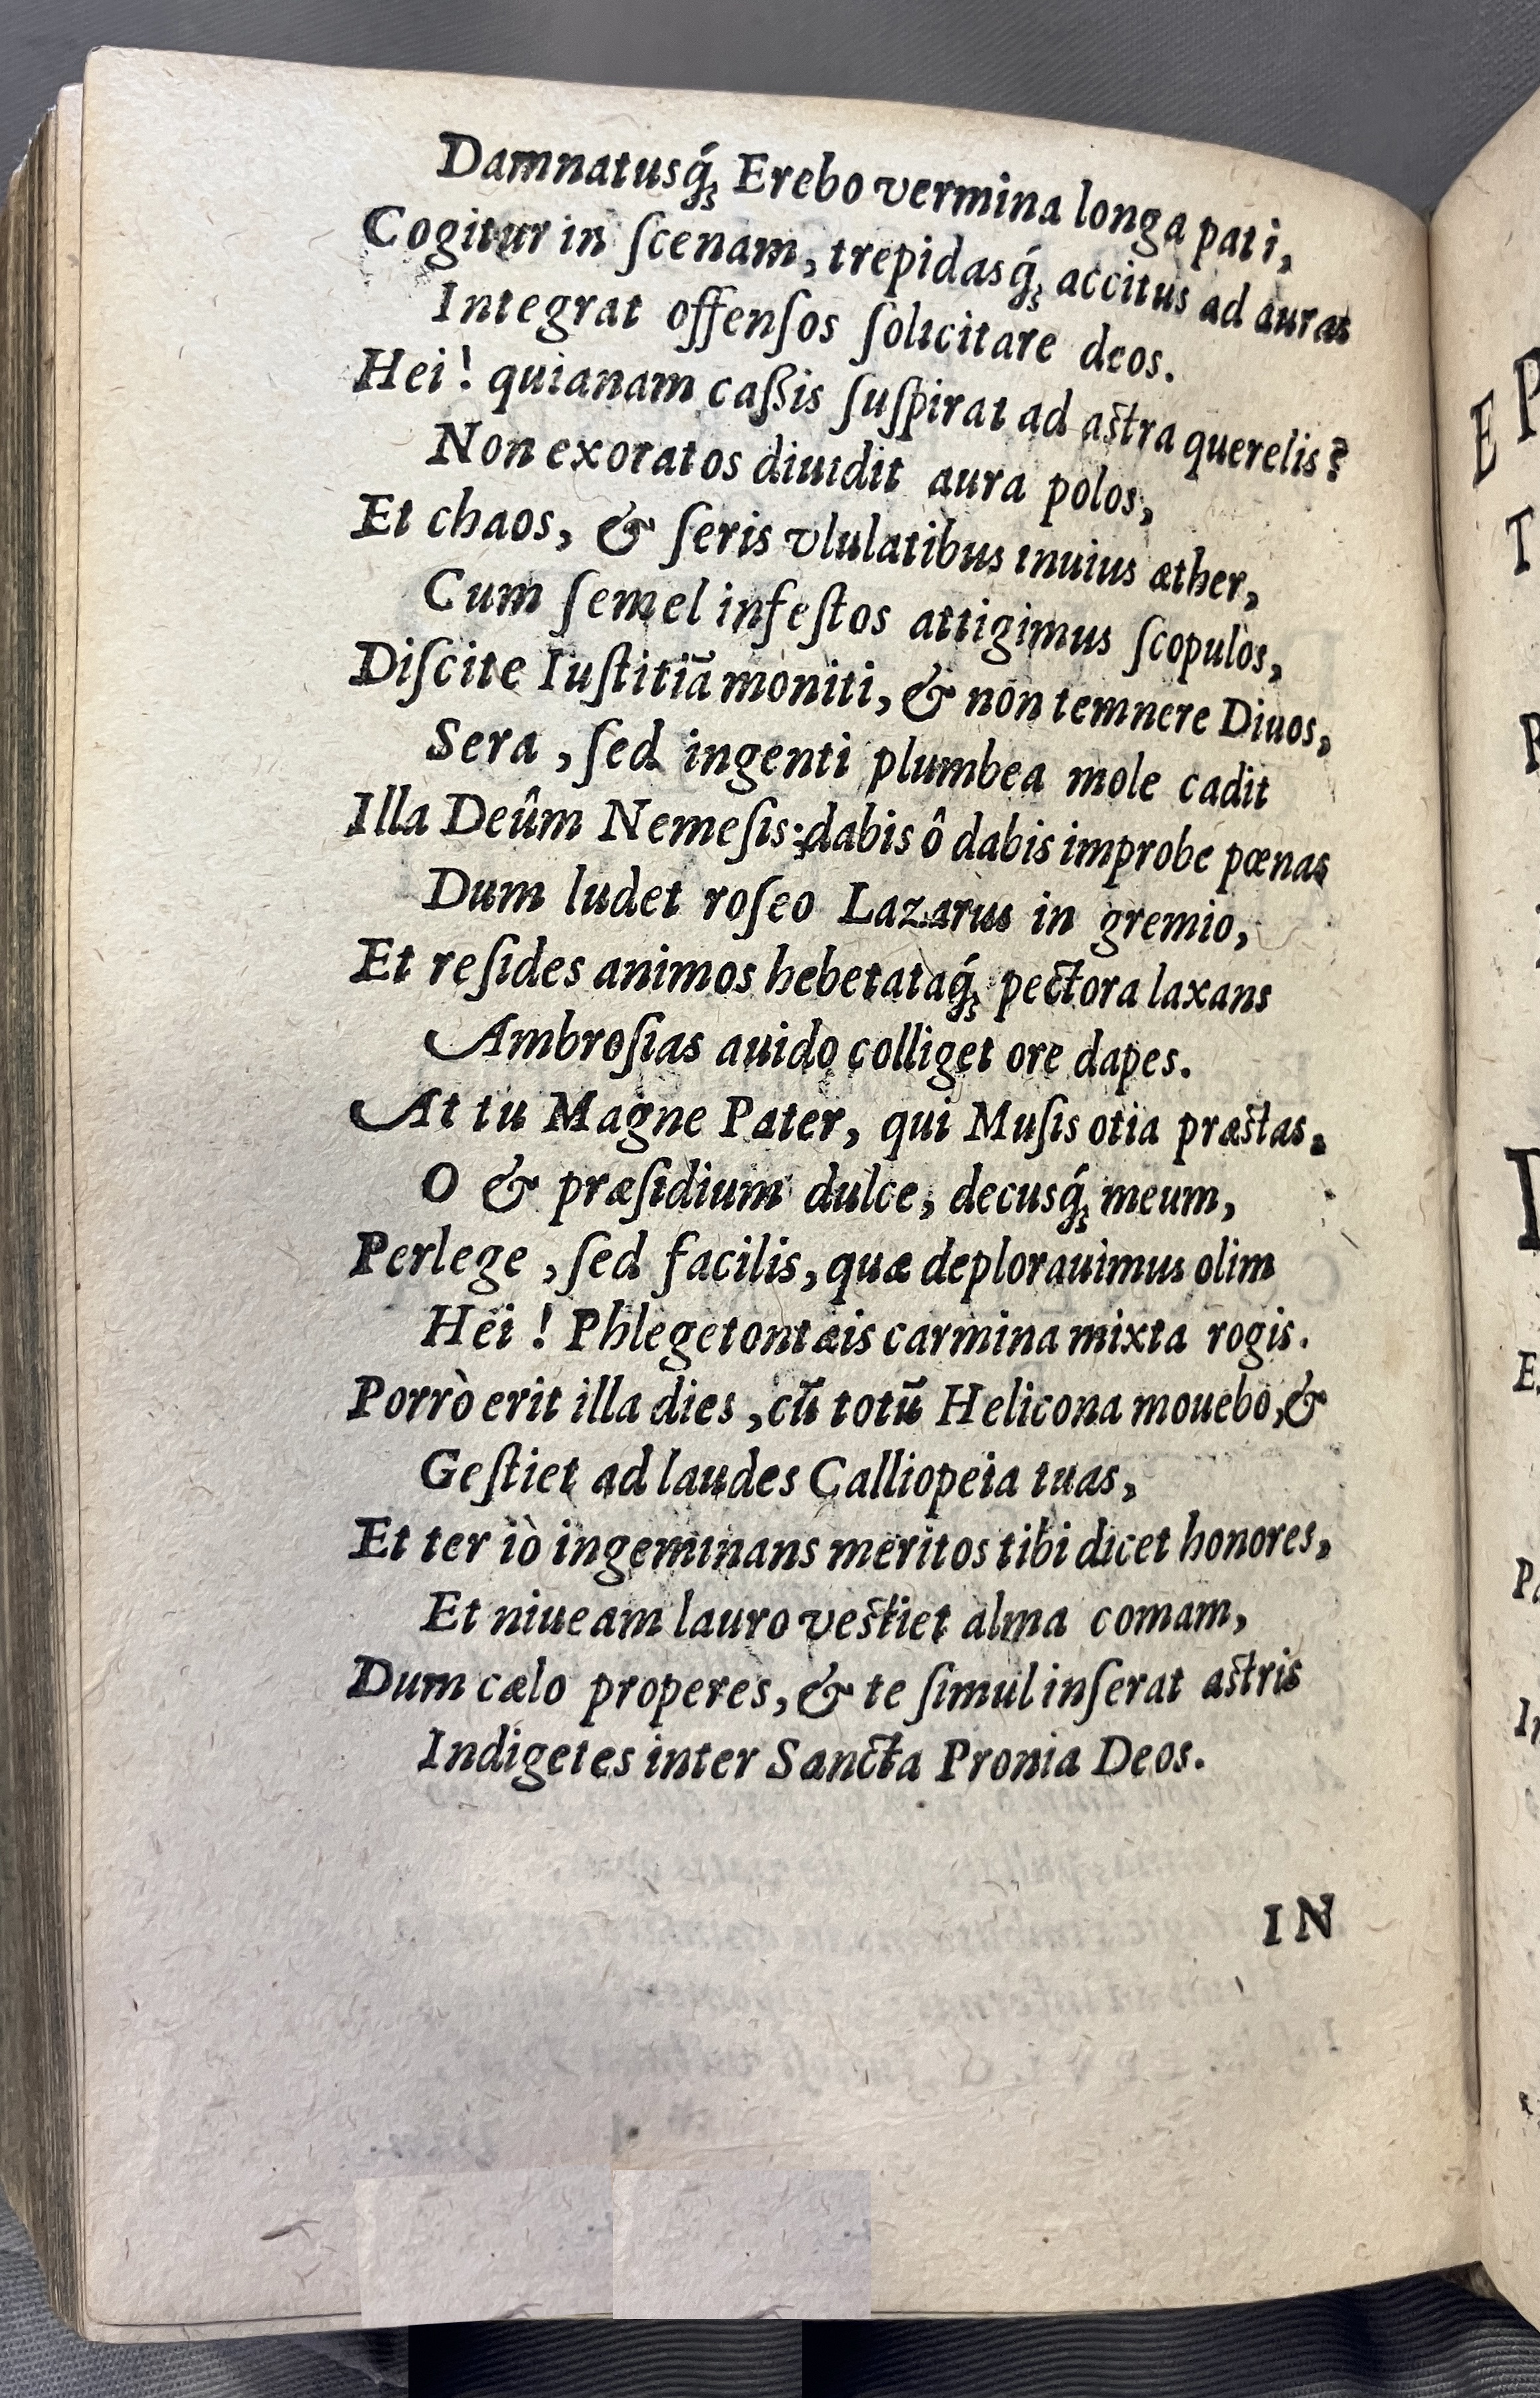 Damnatusq́; Erebo vermina longa pati,
Cogitur in ſcenam, trepidasq́; accitus ad auras
Integrat offenſos ſolicitare deos.
Hei! quianam caßis ſuſpirat ad aſtra querelis?
Non exoratos diuidit aura polos,
Et chaos, & ſeris vlulatibus inuius æther,
Cum ſemel infeſtos attigimus ſcopulos,
Diſcite Iuſtitiā moniti, & non temnere Diuos,
Sera, ſed ingenti plumbea mole cadit
Illa Deûm Nemeſis: dabis ô dabis improbe pœnas
Dum ludet roſeo Lazarus in gremio,
Et reſides animos hebetataq́; pectora laxans
Ambroſias auido colliget ore dapes.
At tu Magne Pater, qui Muſis otia præſtas.
O & præſidium dulce, decusq́; meum,
Perlege, ſed facilis, quæ deplorauimus olim
Hei! Phlegetontæis carmina mixta rogis.
Porrò erit illa dies, cū totū Helicona mouebo, &
Geſtiet ad laudes Calliopeia tuas,
Et ter iò ingeminans meritos tibi dicet honores,
Et niueam lauro veſtiet alma comam,
Dum cælo properes, & te ſimul inſerat aſtris
Indigetes inter Sancta Pronia Deos.
IN